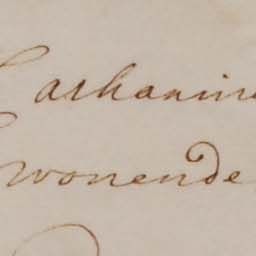 Catharina
wonende